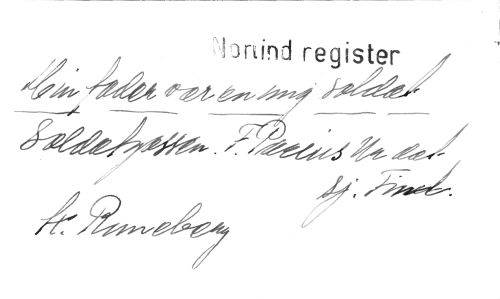 Norlind register
Min fader var en ung soldat
Soldatgossen. F. Pacius Ur det
sj. Finl.
Runeberg